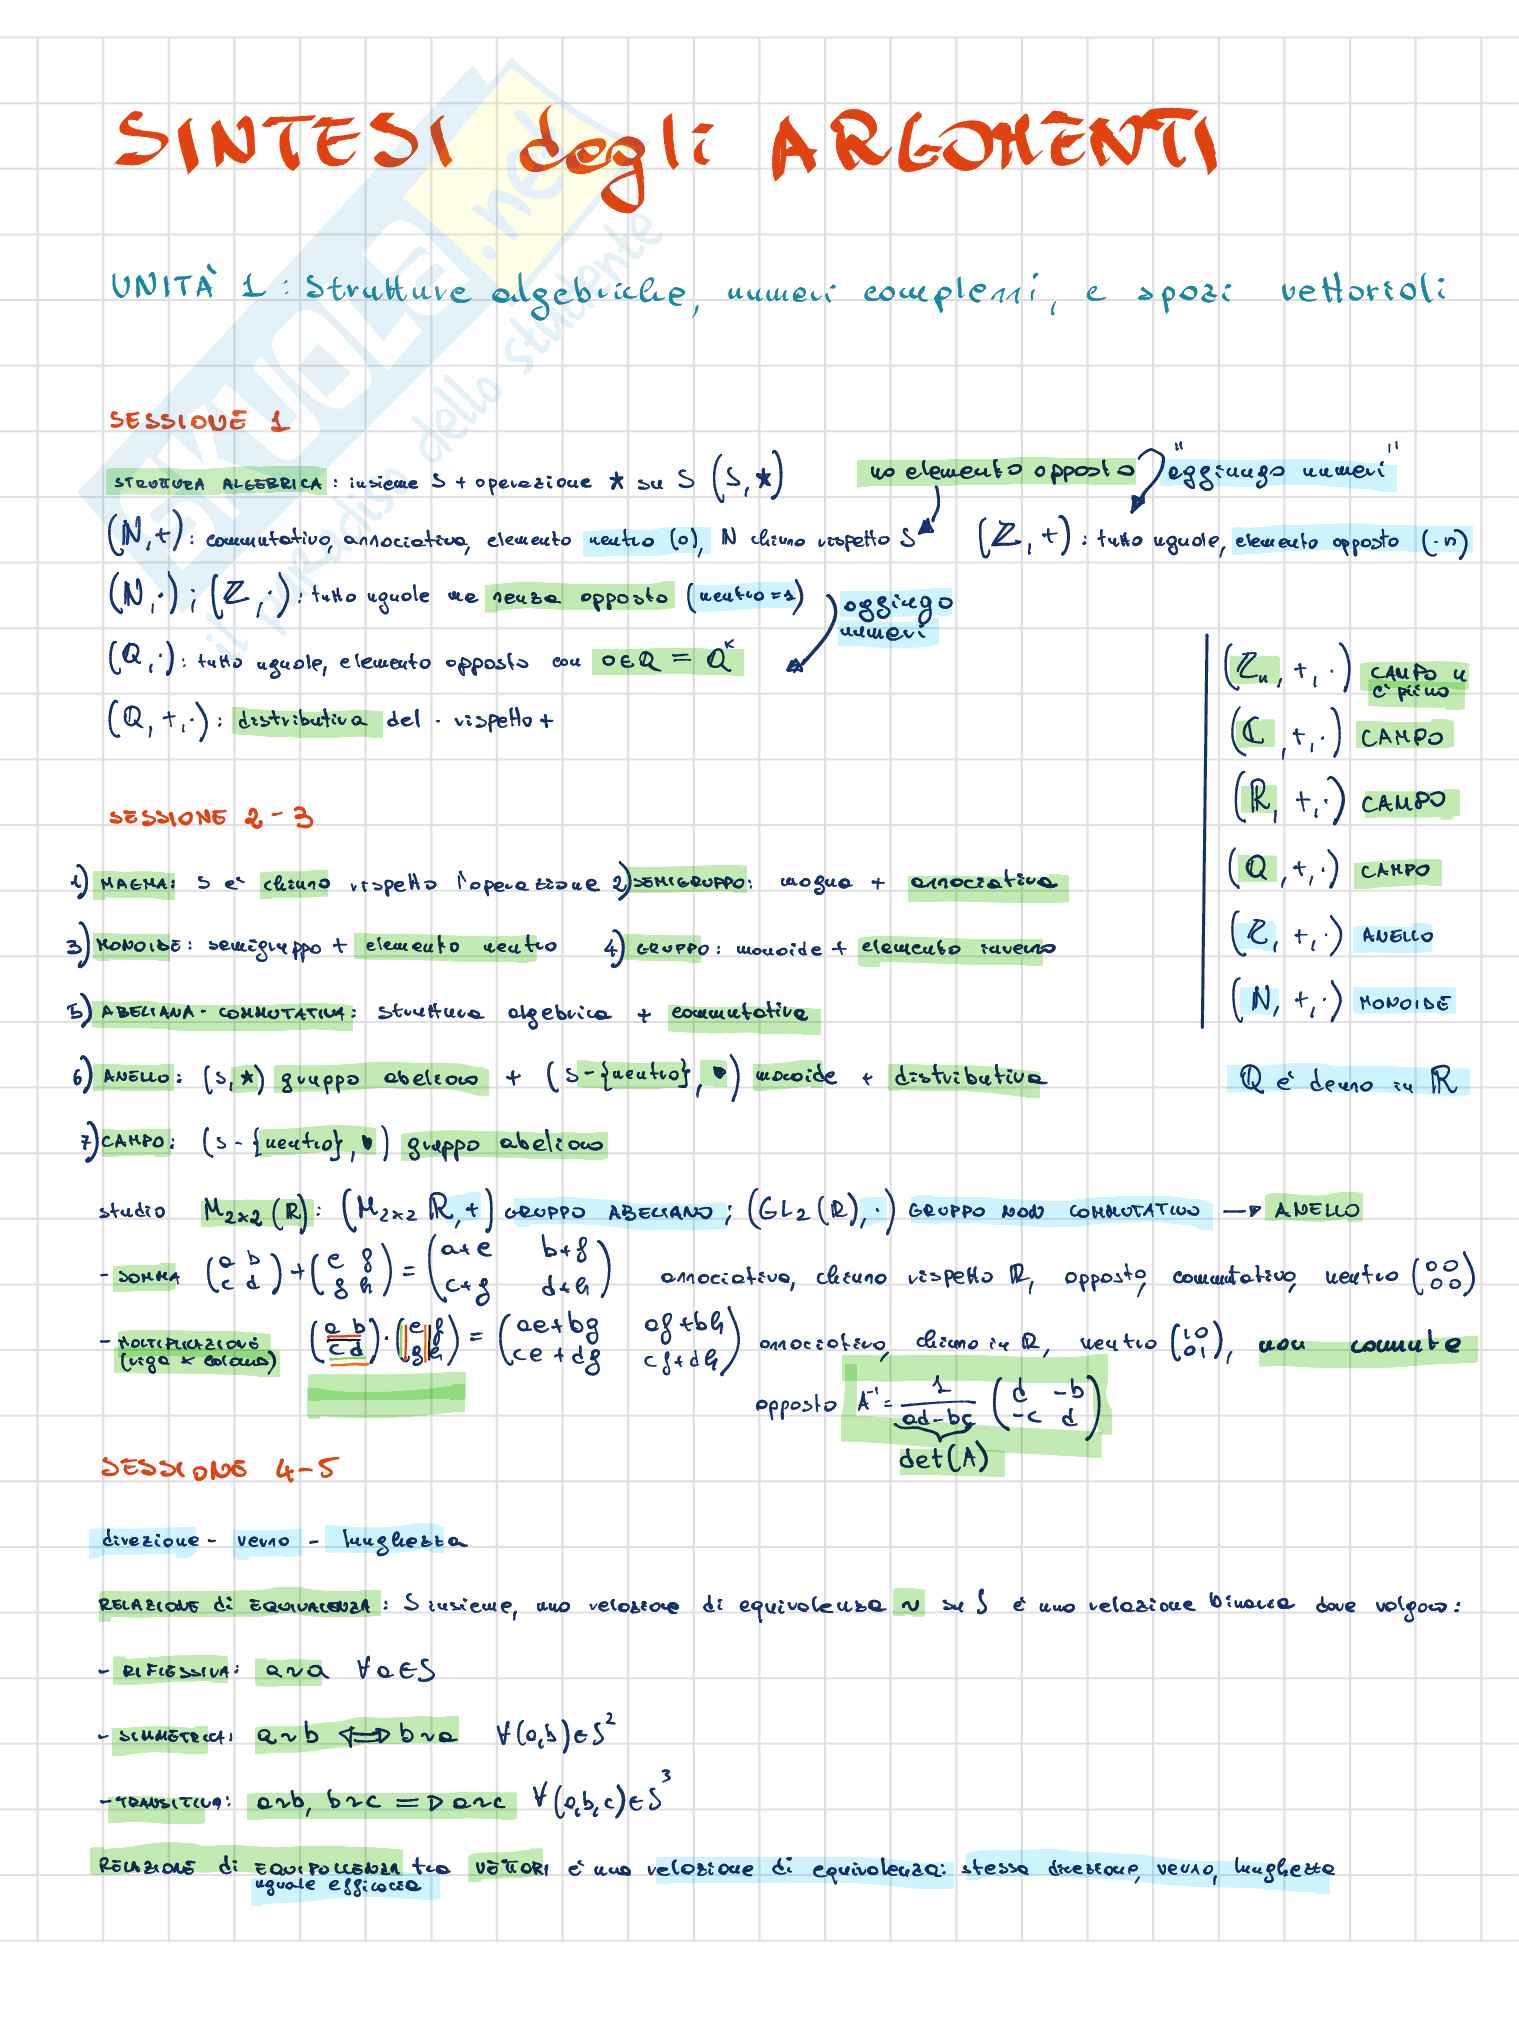 SINTESI degli ARGOMENTI
UNITÀ 1 : Strutture algebriche, numeri complessi, e spazi vettoriali
SESSIONE 1
STRUTTURA ALGEBRICA : insieme S + operazione ★ su S (S, ★)
no elemento opposto "aggiungo numeri"
(ℕ, +) : commutativa, associativa, elemento neutro (0), ℕ chiuso rispetto S
(ℤ, +) : tutto uguale, elemento opposto (-n)
(ℕ, ·) ; (ℤ, ·) : tutto uguale ma senza opposto (neutro = 1)
aggiungo
numeri
(ℚ, ·) : tutto uguale, elemento opposto con 0∈ℚ = ℚ*
(ℚ, +, ·) : distributiva del · rispetto +
(ℤn, +, ·) CAMPO n
è primo
(ℂ, +, ·) CAMPO
(ℝ, +, ·) CAMPO
(ℚ, +, ·) CAMPO
(ℤ, +, ·) ANELLO
(ℕ, +, ·) MONOIDE
ℚ è denso in ℝ
SESSIONE 2 - 3
1) MAGMA: S è chiuso rispetto l'operazione 2) SEMIGRUPPO: magma + associativa
3) MONOIDE: semigruppo + elemento neutro 4) GRUPPO: monoide + elemento inverso
5) ABELIANA - COMMUTATIVA: struttura algebrica + commutativa
6) ANELLO: (S, ★) gruppo abeliano + (S - {neutro}, ♥) monoide + distributiva
7) CAMPO: (S - {neutro}, ♥) gruppo abeliano
studio M2×2 (ℝ) : (M2×2 ℝ, +) GRUPPO ABELIANO ; (GL2 (ℝ), ·) GRUPPO NON COMMUTATIVO → ANELLO
- SOMMA (a b / c d) + (e f / g h) = (a+e b+f / c+g d+h) associativa, chiuso rispetto ℝ, opposto, commutativo, neutro (0 0 / 0 0)
- MOLTIPLICAZIONE (riga × colonna) (a b / c d) · (e f / g h) = (ae+bg af+bh / ce+dg cf+dh) associativa, chiuso in ℝ, neutro (1 0 / 0 1), non commuta
opposto A⁻¹ = 1/(ad-bc) (d -b / -c d)
det(A)
SESSIONE 4-5
direzione - verso - lunghezza
RELAZIONE di EQUIVALENZA : S insieme, una relazione di equivalenza ~ su S è una relazione binaria dove valgono :
- RIFLESSIVA: a~a ∀a∈S
- SIMMETRICA: a~b ⟺ b~a ∀(a,b)∈S²
- TRANSITIVA: a~b, b~c ⟹ a~c ∀(a,b,c)∈S³
RELAZIONE di EQUIPOLLENZA tra VETTORI è una relazione di equivalenza: stessa direzione, verso, lunghezza
uguale efficacia
SKUOLA.net
il paradiso dello studente